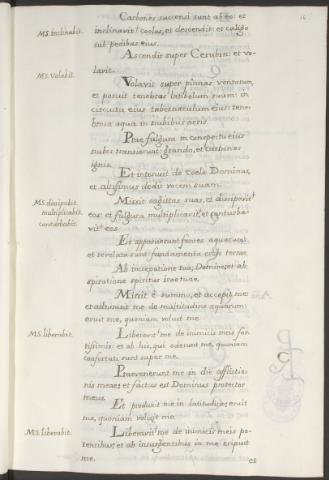 16
Carbones succensi sunt ab eo: et
MS. inclinabit.
inclinavit coelos, et descendit: et caligo
sub pedibus eius.
Ascendit super Cerubin: et vo-
lavit.
MS. Volabit.
Volavit super pinnas ventorum,
et posuit tenebras latibulum suum: in
circuitu eius tabernaculum eius tene-
brosa aqua in nubibus aeris.
Prae fulgura in conspectu eius
nubes transierunt: grando, et carbones
ignis.
Et intonuit de Coelo Dominus,
et altissimus dedit vocem suam.
MS. dissipabit.
multiplicabit.
conturbabit.
Missit sagittas suas, et dissipavit
eos: et fulgura multiplicavit, et conturba-
vit eos.
Et apparuerunt fontes aquarum:
et revelata sunt fundamenta orbis terrae.
Ab increpatione tua, Domine, et ab
spiratione spiritus irae tuae.
Missit e summo, et accepit me:
et adsumit me de multitudine aquarum:
eruit me, quoniam voluit me.
MS. liberabit.
Liberavit me de inimicis meis for-
tissimis: et ab his, qui oderunt me, quoniam
confortati sunt super me.
Praevenerunt me in die afflictio-
nis meae: et factus est Dominus protector
meus.
Et produxit me in latitudine: eruit
me, quoniam voluit me.
MS. liberabit.
Liberavit me de inimicis meis po-
tentibus: et ab insurgentibus in me eripuit
me.
et